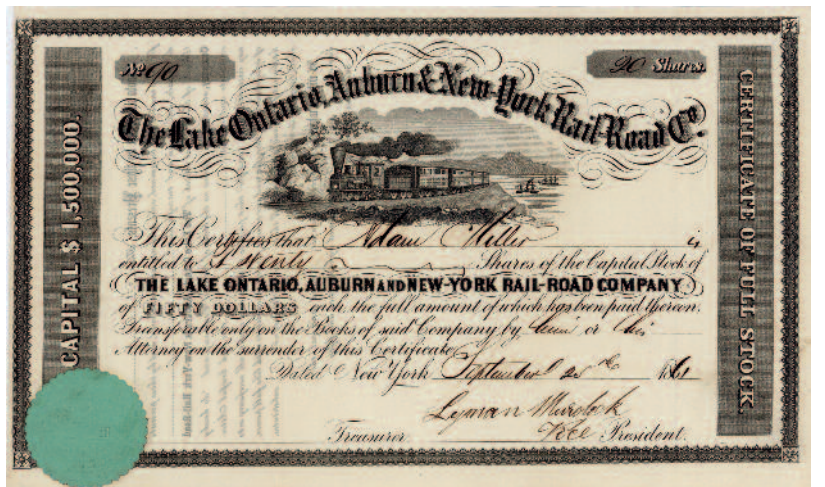 No 90
20 Shares.
The Lake Ontario, Auburn & New-York Rail-Road Co.
CAPITAL $ 1,500,000.
CERTIFICATE OF FULL STOCK.
This Certifies that Adam Miller is
entitled to Twenty Shares of the Capital Stock of
THE LAKE ONTARIO, AUBURN AND NEW-YORK RAIL-ROAD COMPANY
of FIFTY DOLLARS each, the full amount of which has been paid thereon.
Transferable only on the Books of said Company, by him or his
Attorney on the surrender of this Certificate
Dated New York September 25th 1861
Lyman Murdock
Treasurer. Vice President.